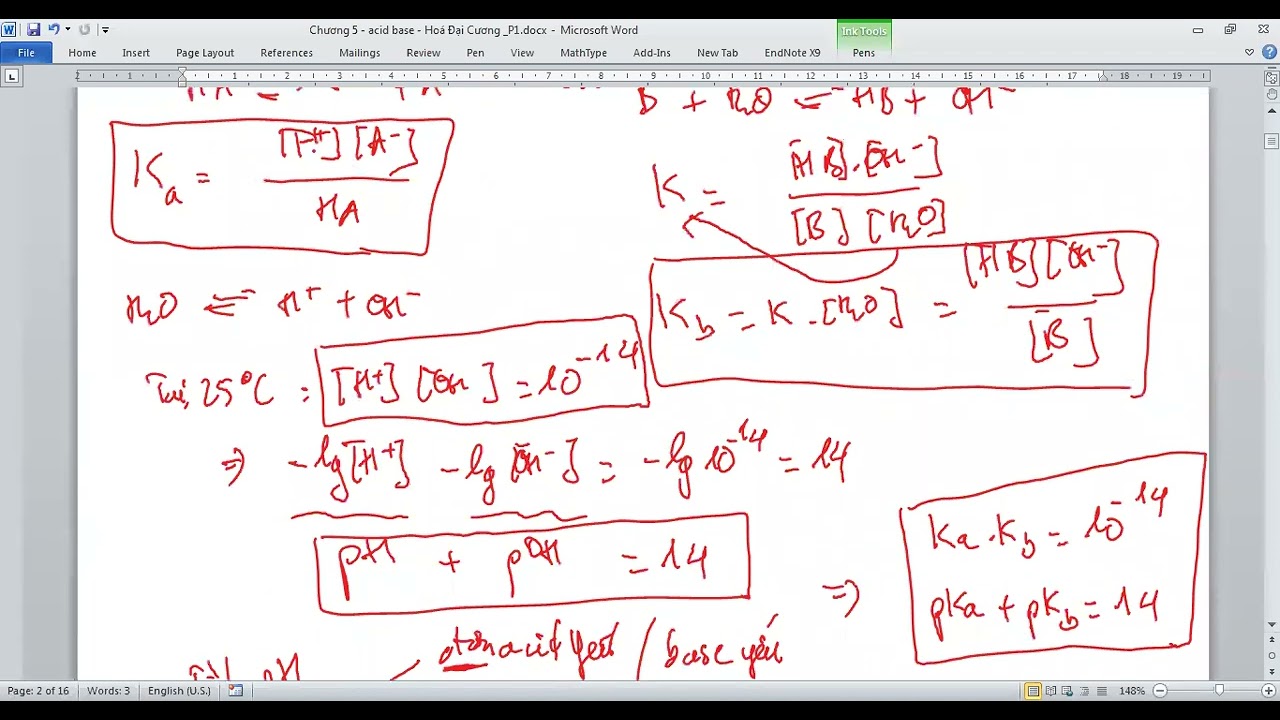 Chương 5 - acid base - Hoá Đại Cương _P1.docx - Microsoft Word
Ink Tools
File Home Insert Page Layout References Mailings Review Pen View MathType Add-Ins New Tab EndNote X9 Pens
2 1 1 2 3 4 5 6 7 8 9 10 11 12 13 14 15 16 17 18 19
B + H2O ⇌ HB + OH⁻
Ka = [H⁺][A⁻] / HA
K = [HB].[OH⁻] / [B][H2O]
Kb = K.[H2O] = [HB][OH⁻] / [B]
H2O ⇌ H⁺ + OH⁻
Tại 25°C : [H+][OH⁻] = 10⁻¹⁴
=> -lg[H+] -lg[OH⁻] = -lg10⁻¹⁴ = 14
pH + pOH = 14
=> Ka.Kb = 10⁻¹⁴
pKa + pKb = 14
đơn acid yếu / base yếu
pH
Page: 2 of 16 Words: 3 English (U.S.) 148%